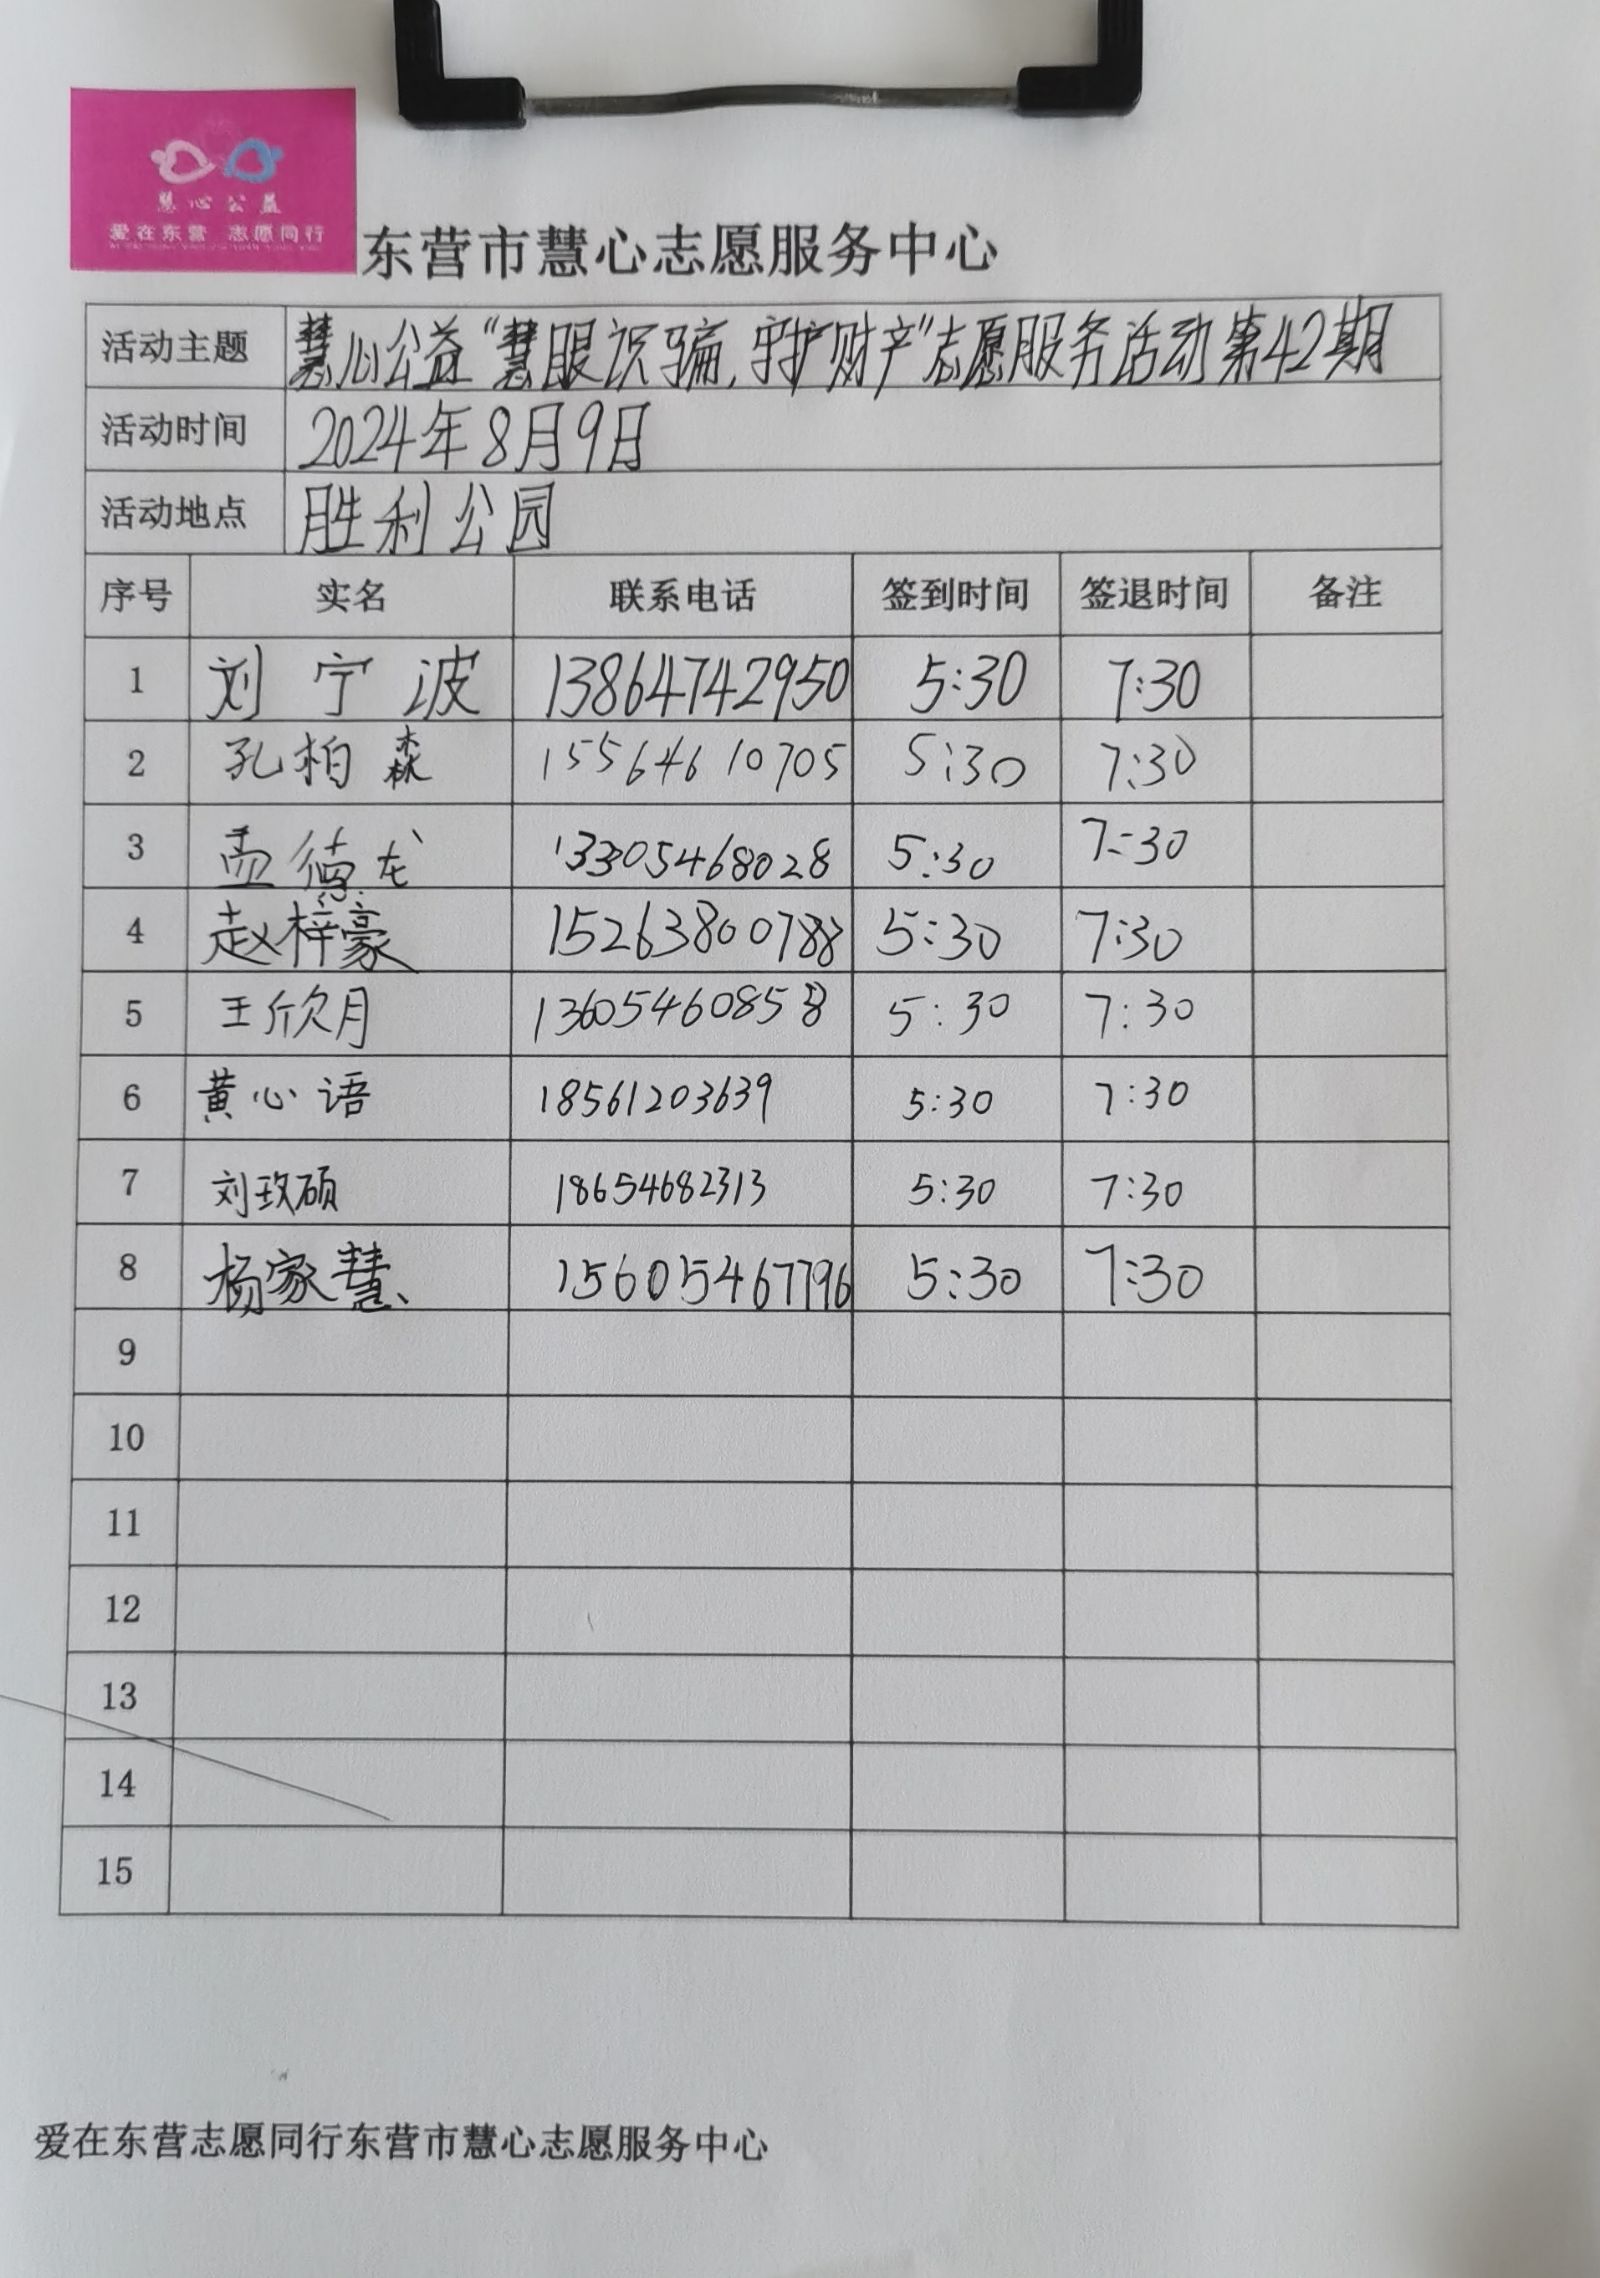 慧心公益
爱在东营 志愿同行
东营市慧心志愿服务中心
活动主题 慧心公益“慧眼识骗,守护财产”志愿服务活动第42期
活动时间 2024年8月9日
活动地点 胜利公园
序号 实名 联系电话 签到时间 签退时间 备注
1 刘宁波 13864742950 5:30 7:30
2 孔柏森 15564610705 5:30 7:30
3 孟德龙 13305468028 5:30 7:30
4 赵梓豪 15263800788 5:30 7:30
5 王欣月 13605460858 5:30 7:30
6 黄心语 18561203639 5:30 7:30
7 刘玫硕 18654682313 5:30 7:30
8 杨家慧 15605467796 5:30 7:30
9
10
11
12
13
14
15
爱在东营志愿同行东营市慧心志愿服务中心